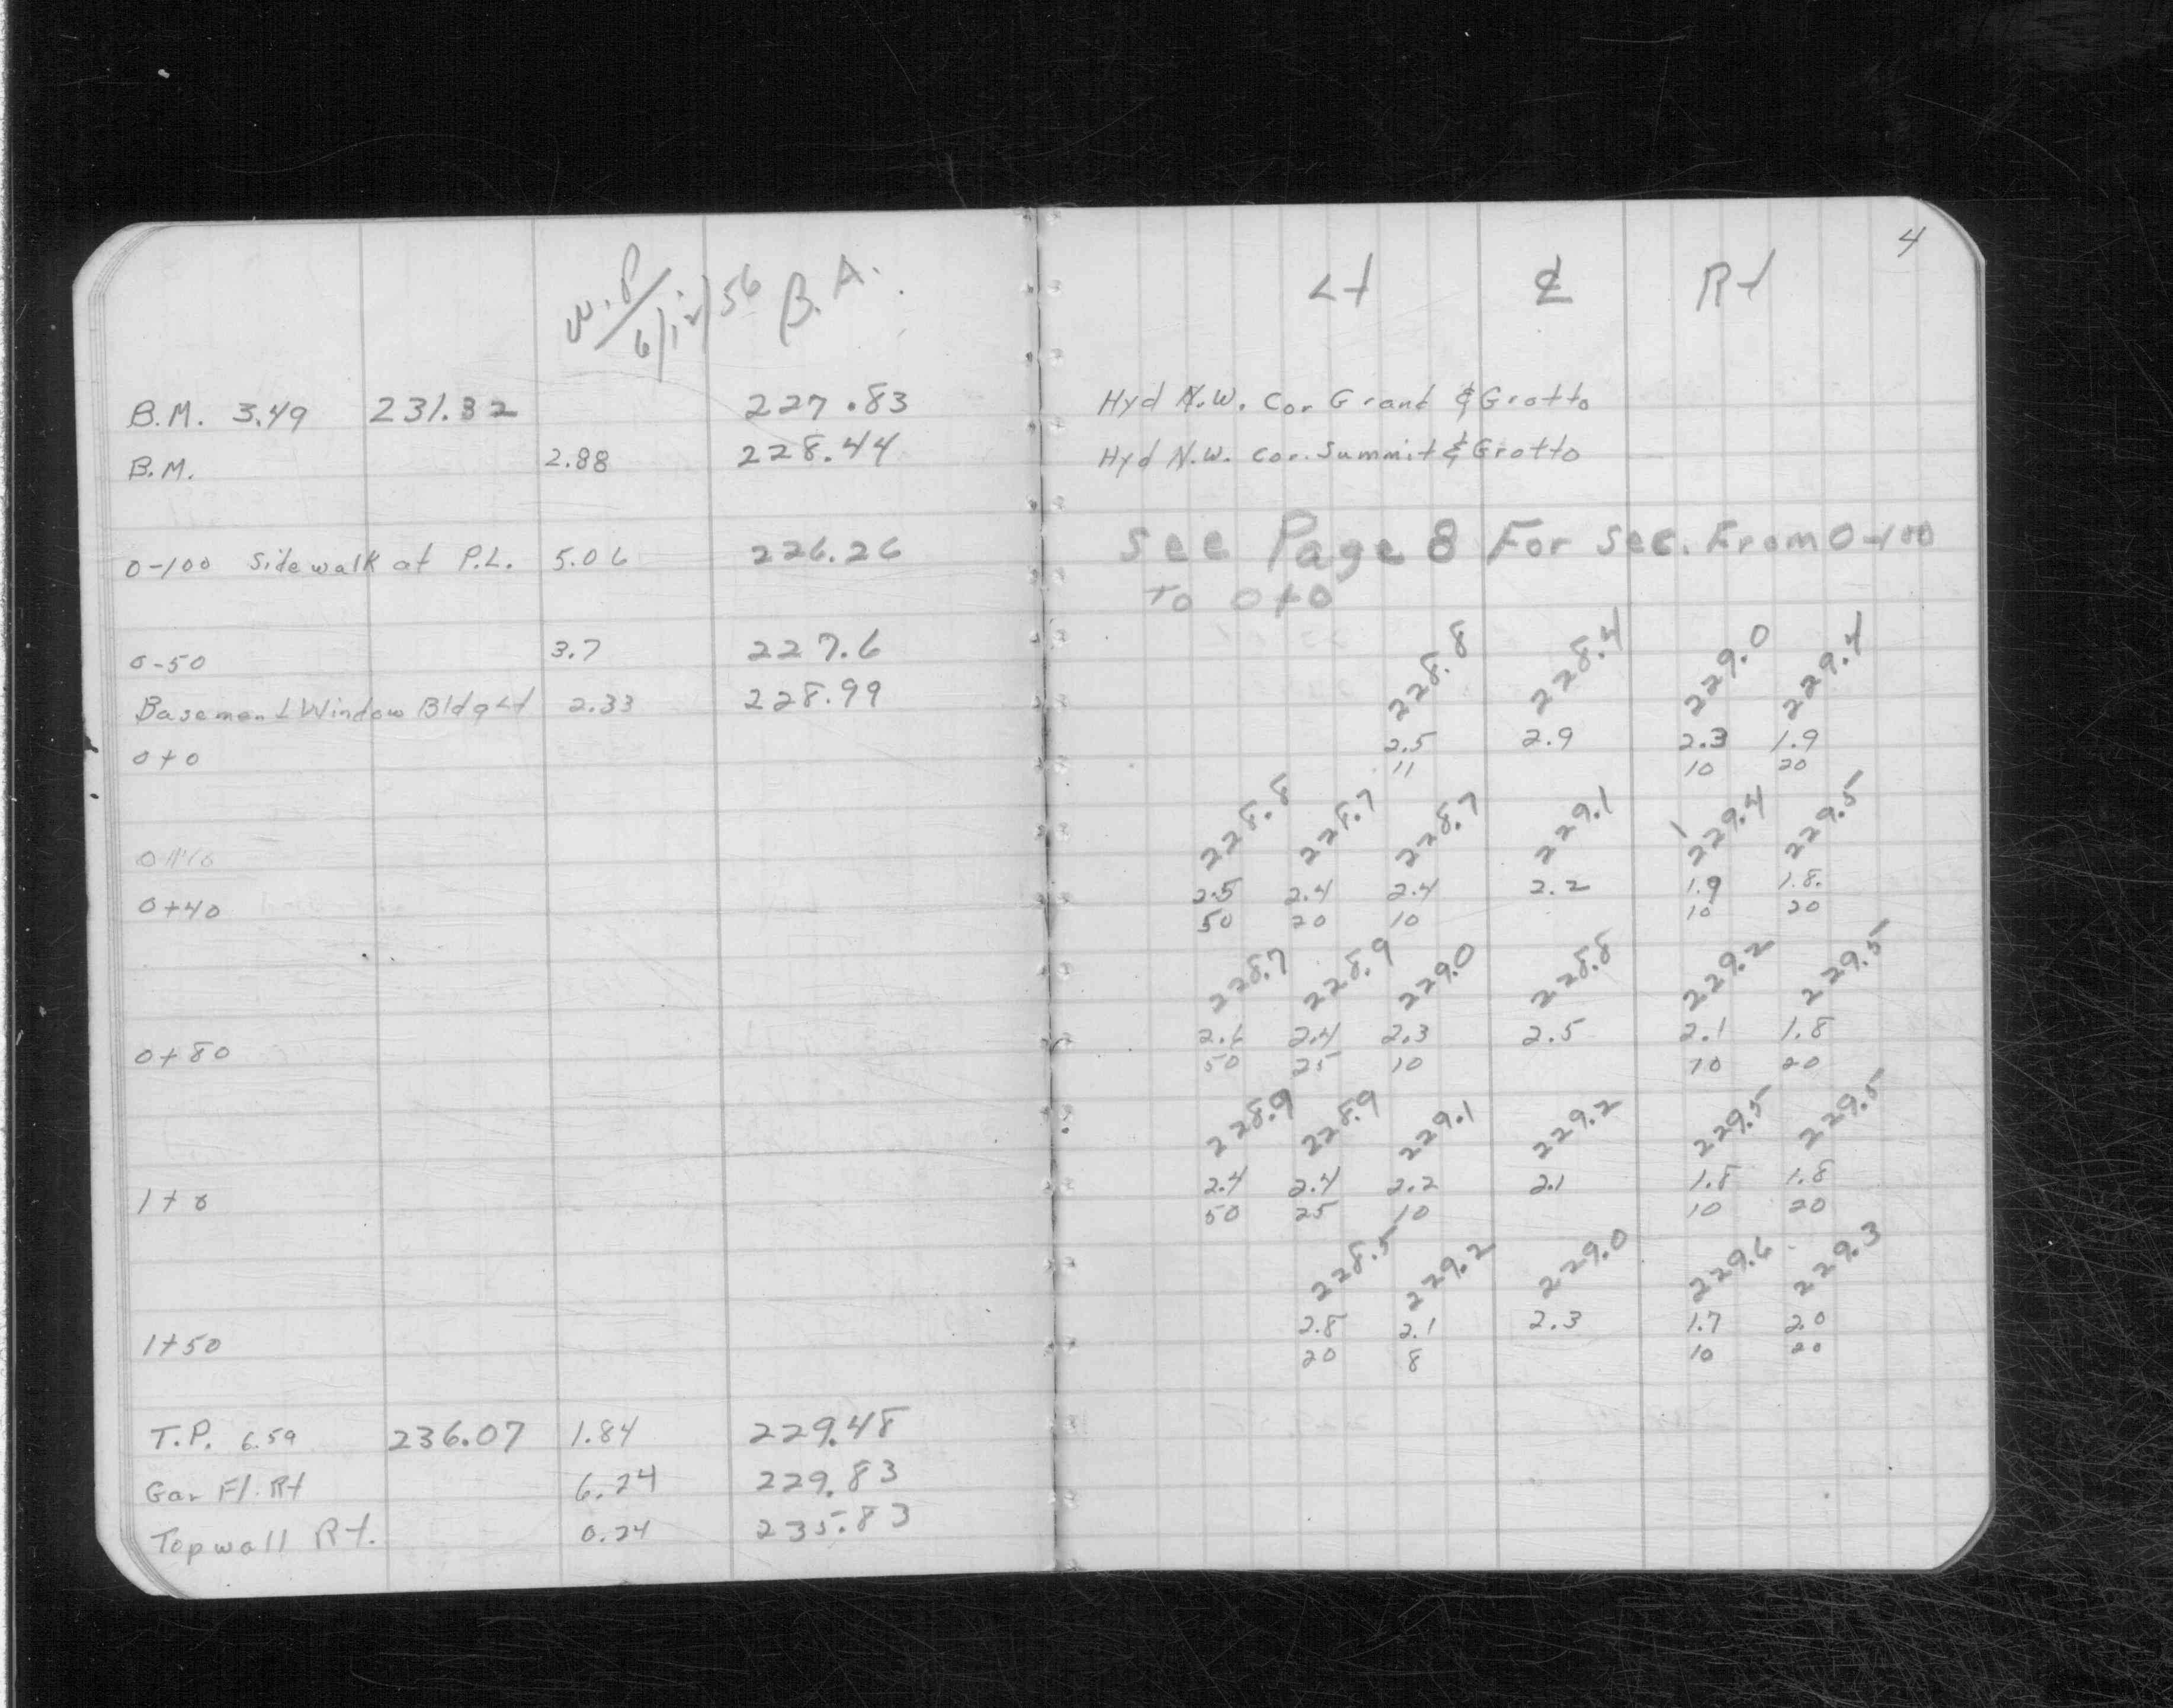 W.P / 6/12/56 B.A.
B.M. 3.49 231.32 227.83
B.M. 2.88 228.44
0-100 Sidewalk at P.L. 5.06 226.26
0-50 3.7 227.6
Basement Window Bldg Lt 2.33 228.99
0+0
0+40
0+80
1+0
1+50
T.P. 6.59 236.07 1.84 229.48
Gar Fl. Rt 6.24 229.83
Topwall Rt. 0.24 235.83
4
Lt ℄ Rt
Hyd N.W. Cor Grand & Grotto
Hyd N.W. Cor. Summit & Grotto
See Page 8 For Sec. From 0-100
To 0+0
228.8 228.4 229.0 229.4
2.5 2.9 2.3 1.9
11 10 20
228.8 228.7 228.7 229.1 229.4 229.5
2.5 2.4 2.4 2.2 1.9 1.8.
50 20 10 10 20
228.7 228.9 229.0 228.8 229.2 229.5
2.6 2.4 2.3 2.5 2.1 1.8
50 25 10 10 20
228.9 228.9 229.1 229.2 229.5 229.5
2.4 2.4 2.2 2.1 1.8 1.8
50 25 10 10 20
228.5 229.2 229.0 229.6 229.3
2.8 2.1 2.3 1.7 2.0
20 8 10 20